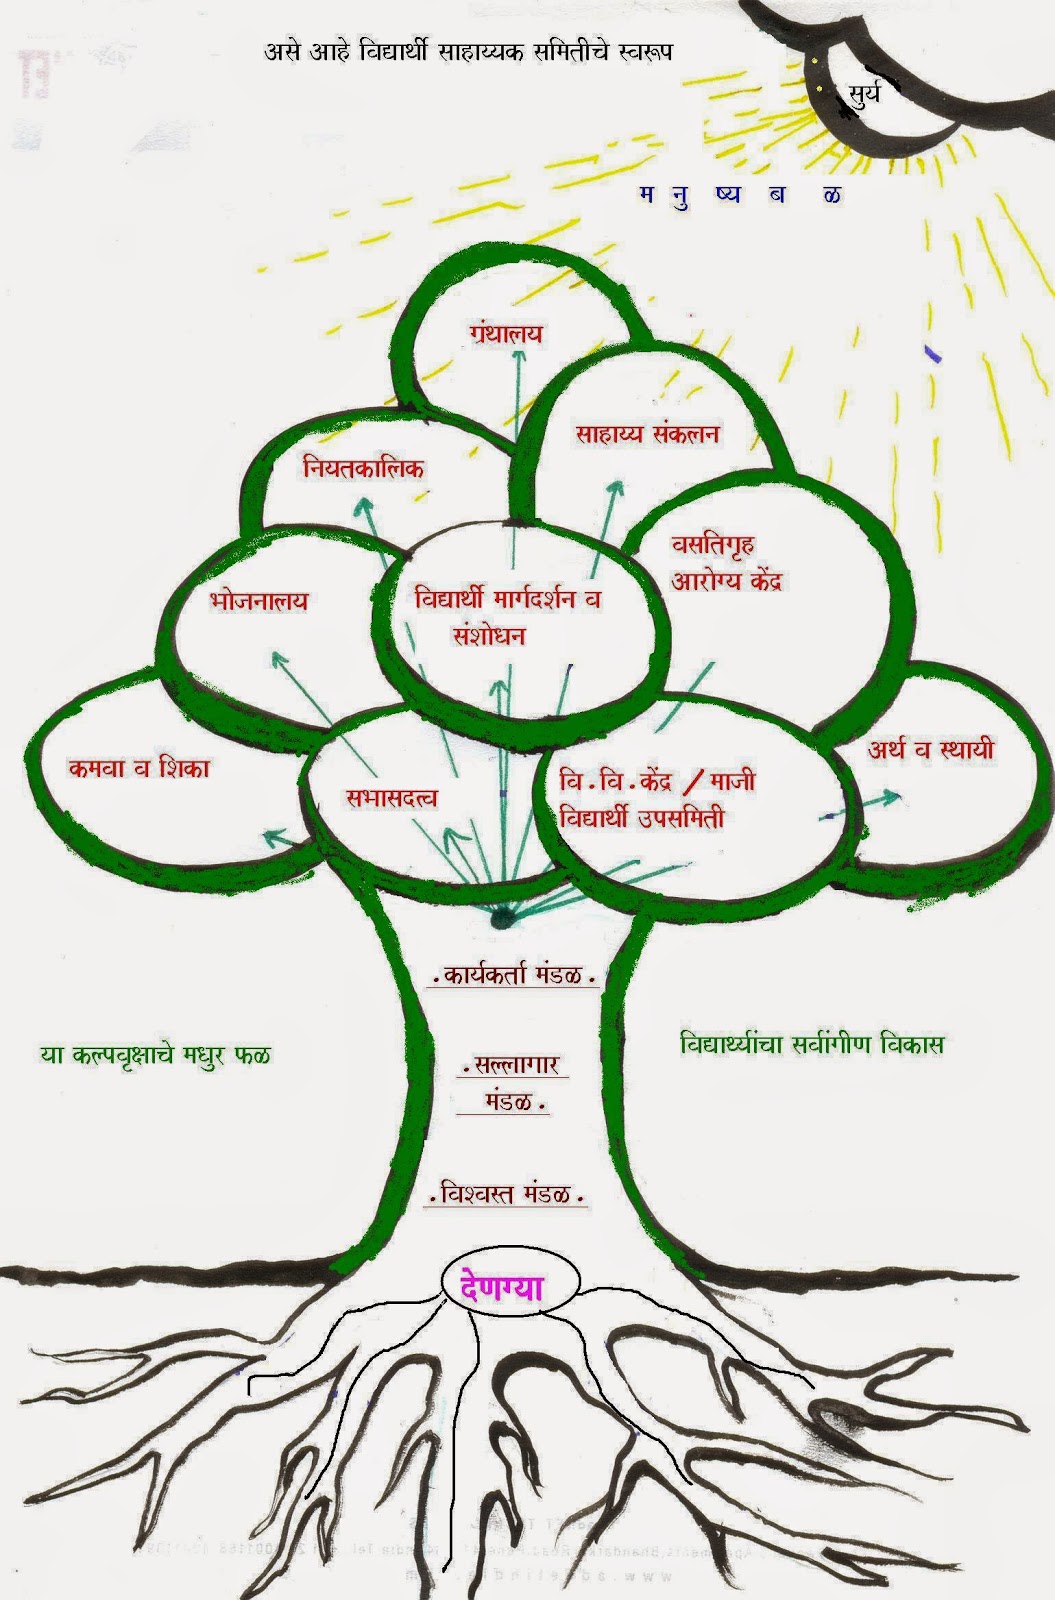 असे आहे विद्यार्थी साहाय्यक समितीचे स्वरूप
सुर्य
म नु ष्य ब ळ
ग्रंथालय
साहाय्य संकलन
नियतकालिक
वसतिगृह
आरोग्य केंद्र
भोजनालय
विद्यार्थी मार्गदर्शन व
संशोधन
कमवा व शिका
सभासदत्व
वि.वि.केंद्र / माजी
विद्यार्थी उपसमिती
अर्थ व स्थायी
.कार्यकर्ता मंडळ.
या कल्पवृक्षाचे मधुर फळ
विद्यार्थ्यांचा सर्वांगीण विकास
.सल्लागार
मंडळ.
.विश्वस्त मंडळ.
देणग्या